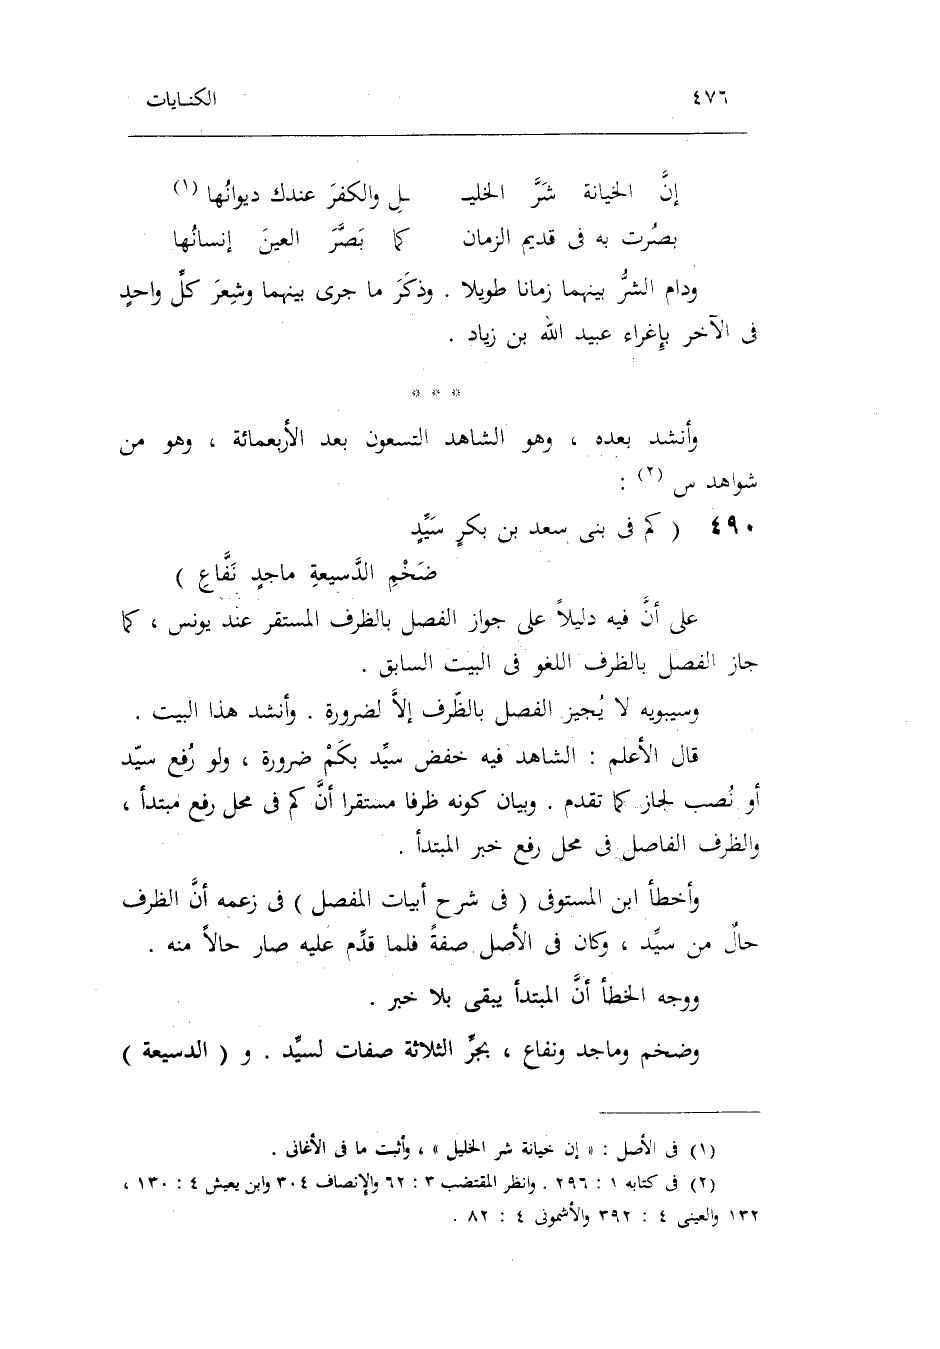 ٤٧٦ الكنايات
إنَّ الخيانة شَرَّ الخليـ ـلِ والكفرَ عندك ديوانُها (١)
بصُرت به فى قديم الزمان كما بَصَّرَ العينَ إنسانُها
ودام الشرُّ بينهما زمانا طويلا . وذكَرَ ما جرى بينهما وشِعرَ كلِّ واحدٍ
فى الآخر بإغراء عبيد الله بن زياد .
* * *
وأنشد بعده ، وهو الشاهد التسعون بعد الأربعمائة ، وهو من
شواهد س (٢) :
٤٩٠ ( كم فى بنى سعد بن بكرٍ سَيِّدٍ
ضَخْمِ الدَّسيعةِ ماجدٍ نَفَّاعِ )
على أنَّ فيه دليلاً على جواز الفصل بالظرف المستقر عند يونس ، كما
جاز الفصل بالظرف اللغو فى البيت السابق .
وسيبويه لا يُجيز الفصل بالظّرف إلاَّ لضرورة . وأنشد هذا البيت .
قال الأعلم : الشاهد فيه خفض سيِّد بكَمْ ضرورة ، ولو رُفع سيّد
أو نُصب لجاز كما تقدم . وبيان كونه ظرفا مستقرا أنَّ كم فى محل رفع مبتدأ ،
والظرف الفاصل فى محل رفع خبر المبتدأ .
وأخطأ ابن المستوفى ( فى شرح أبيات المفصل ) فى زعمه أنَّ الظرف
حالٌ من سيِّد ، وكان فى الأصل صفةً فلما قدِّم عليه صار حالاً منه .
ووجه الخطأ أنَّ المبتدأ يبقى بلا خبر .
وضخم وماجد ونفاع ، بجرِّ الثلاثة صفات لسيِّد . و ( الدسيعة )
(١) فى الأصل : « إن خيانة شر الخليل » ، وأثبت ما فى الأغانى .
(٢) فى كتابه ١ : ٢٩٦ . وانظر المقتضب ٣ : ٦٢ والإنصاف ٣٠٤ وابن يعيش ٤ : ١٣٠ ،
١٣٢ والعينى ٤ : ٣٩٢ والأشمونى ٤ : ٨٢ .